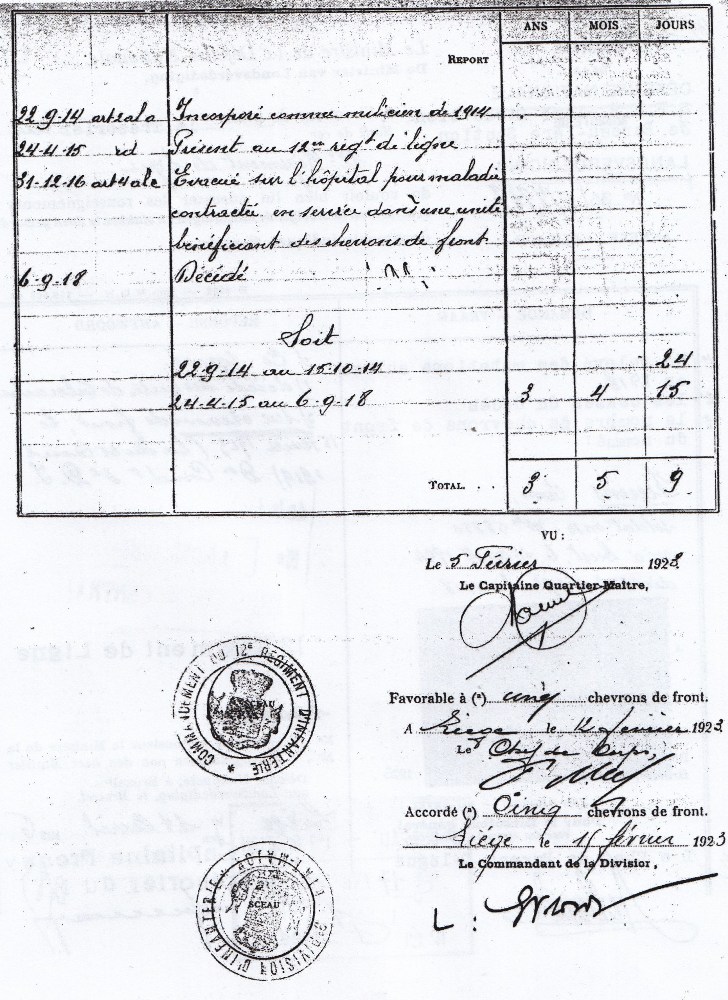 ANS MOIS JOURS
REPORT
22-9-14 Incorporé comme milicien de 1914
24-4-15 id Présent au 12me régt de ligne
31-12-16 Evacué sur l'hôpital pour maladie
contractée en service dans une unité
bénéficiant des chevrons de front
6-9-18 Décédé
Soit
22-9-14 au 15-10-14 24
24-4-15 au 6-9-18 3 4 15
TOTAL. . . 3 5 9
VU :
Le 5 Février 1923
Le Capitaine Quartier-Maître,
Favorable à (*) cinq chevrons de front.
A Liége le 12 février 1923
Le Chef de Corps,
Accordé (*) Cinq chevrons de front.
Liége le février 1923
Le Commandant de la Division,
COMMANDEMENT DU 12e REGIMENT D'INFANTERIE *
SCEAU
DIVISION D'INFANTERIE
SCEAU